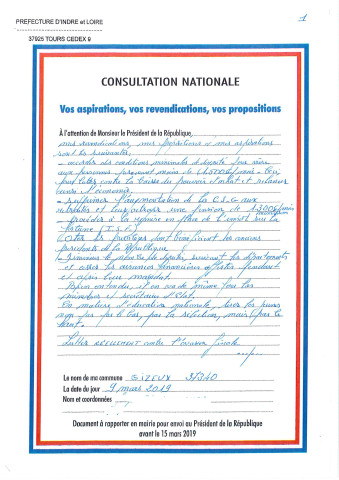 PREFECTURE D'INDRE et LOIRE
37925 TOURS CEDEX 9
1
CONSULTATION NATIONALE
Vos aspirations, vos revendications, vos propositions
À l'attention de Monsieur le Président de la République,
mes revendications, mes propositions et mes aspirations
sont les suivantes :
- accorder des conditions minimales de dignité pour vivre
aux personnes percevant moins de
pour lutter contre la baisse du pouvoir d'achat et relancer
l'économie.
- supprimer l'augmentation de la C.S.G aux
retraités et leur octroyer une pension de 1300€/mois
minimum
- procéder à la remise en place de l'impôt sur la
fortune (I.S.F)
les privilèges dont bénéficient les anciens
présidents de la République
le des députés, suivant les départements
et les financières pendant
et après leur mandat.
Bien entendu, il en va de même pour les
ministres et secrétaires d'Etat.
En matière d'éducation nationale, les jeunes
non pas par le bas, par la sélection, mais par le
haut.
Lutter REELLEMENT contre l'évasion fiscale
Le nom de ma commune GIZEUX 37340
La date du jour 9 mars 2019
Nom et coordonnées
Document à rapporter en mairie pour envoi au Président de la République
avant le 15 mars 2019